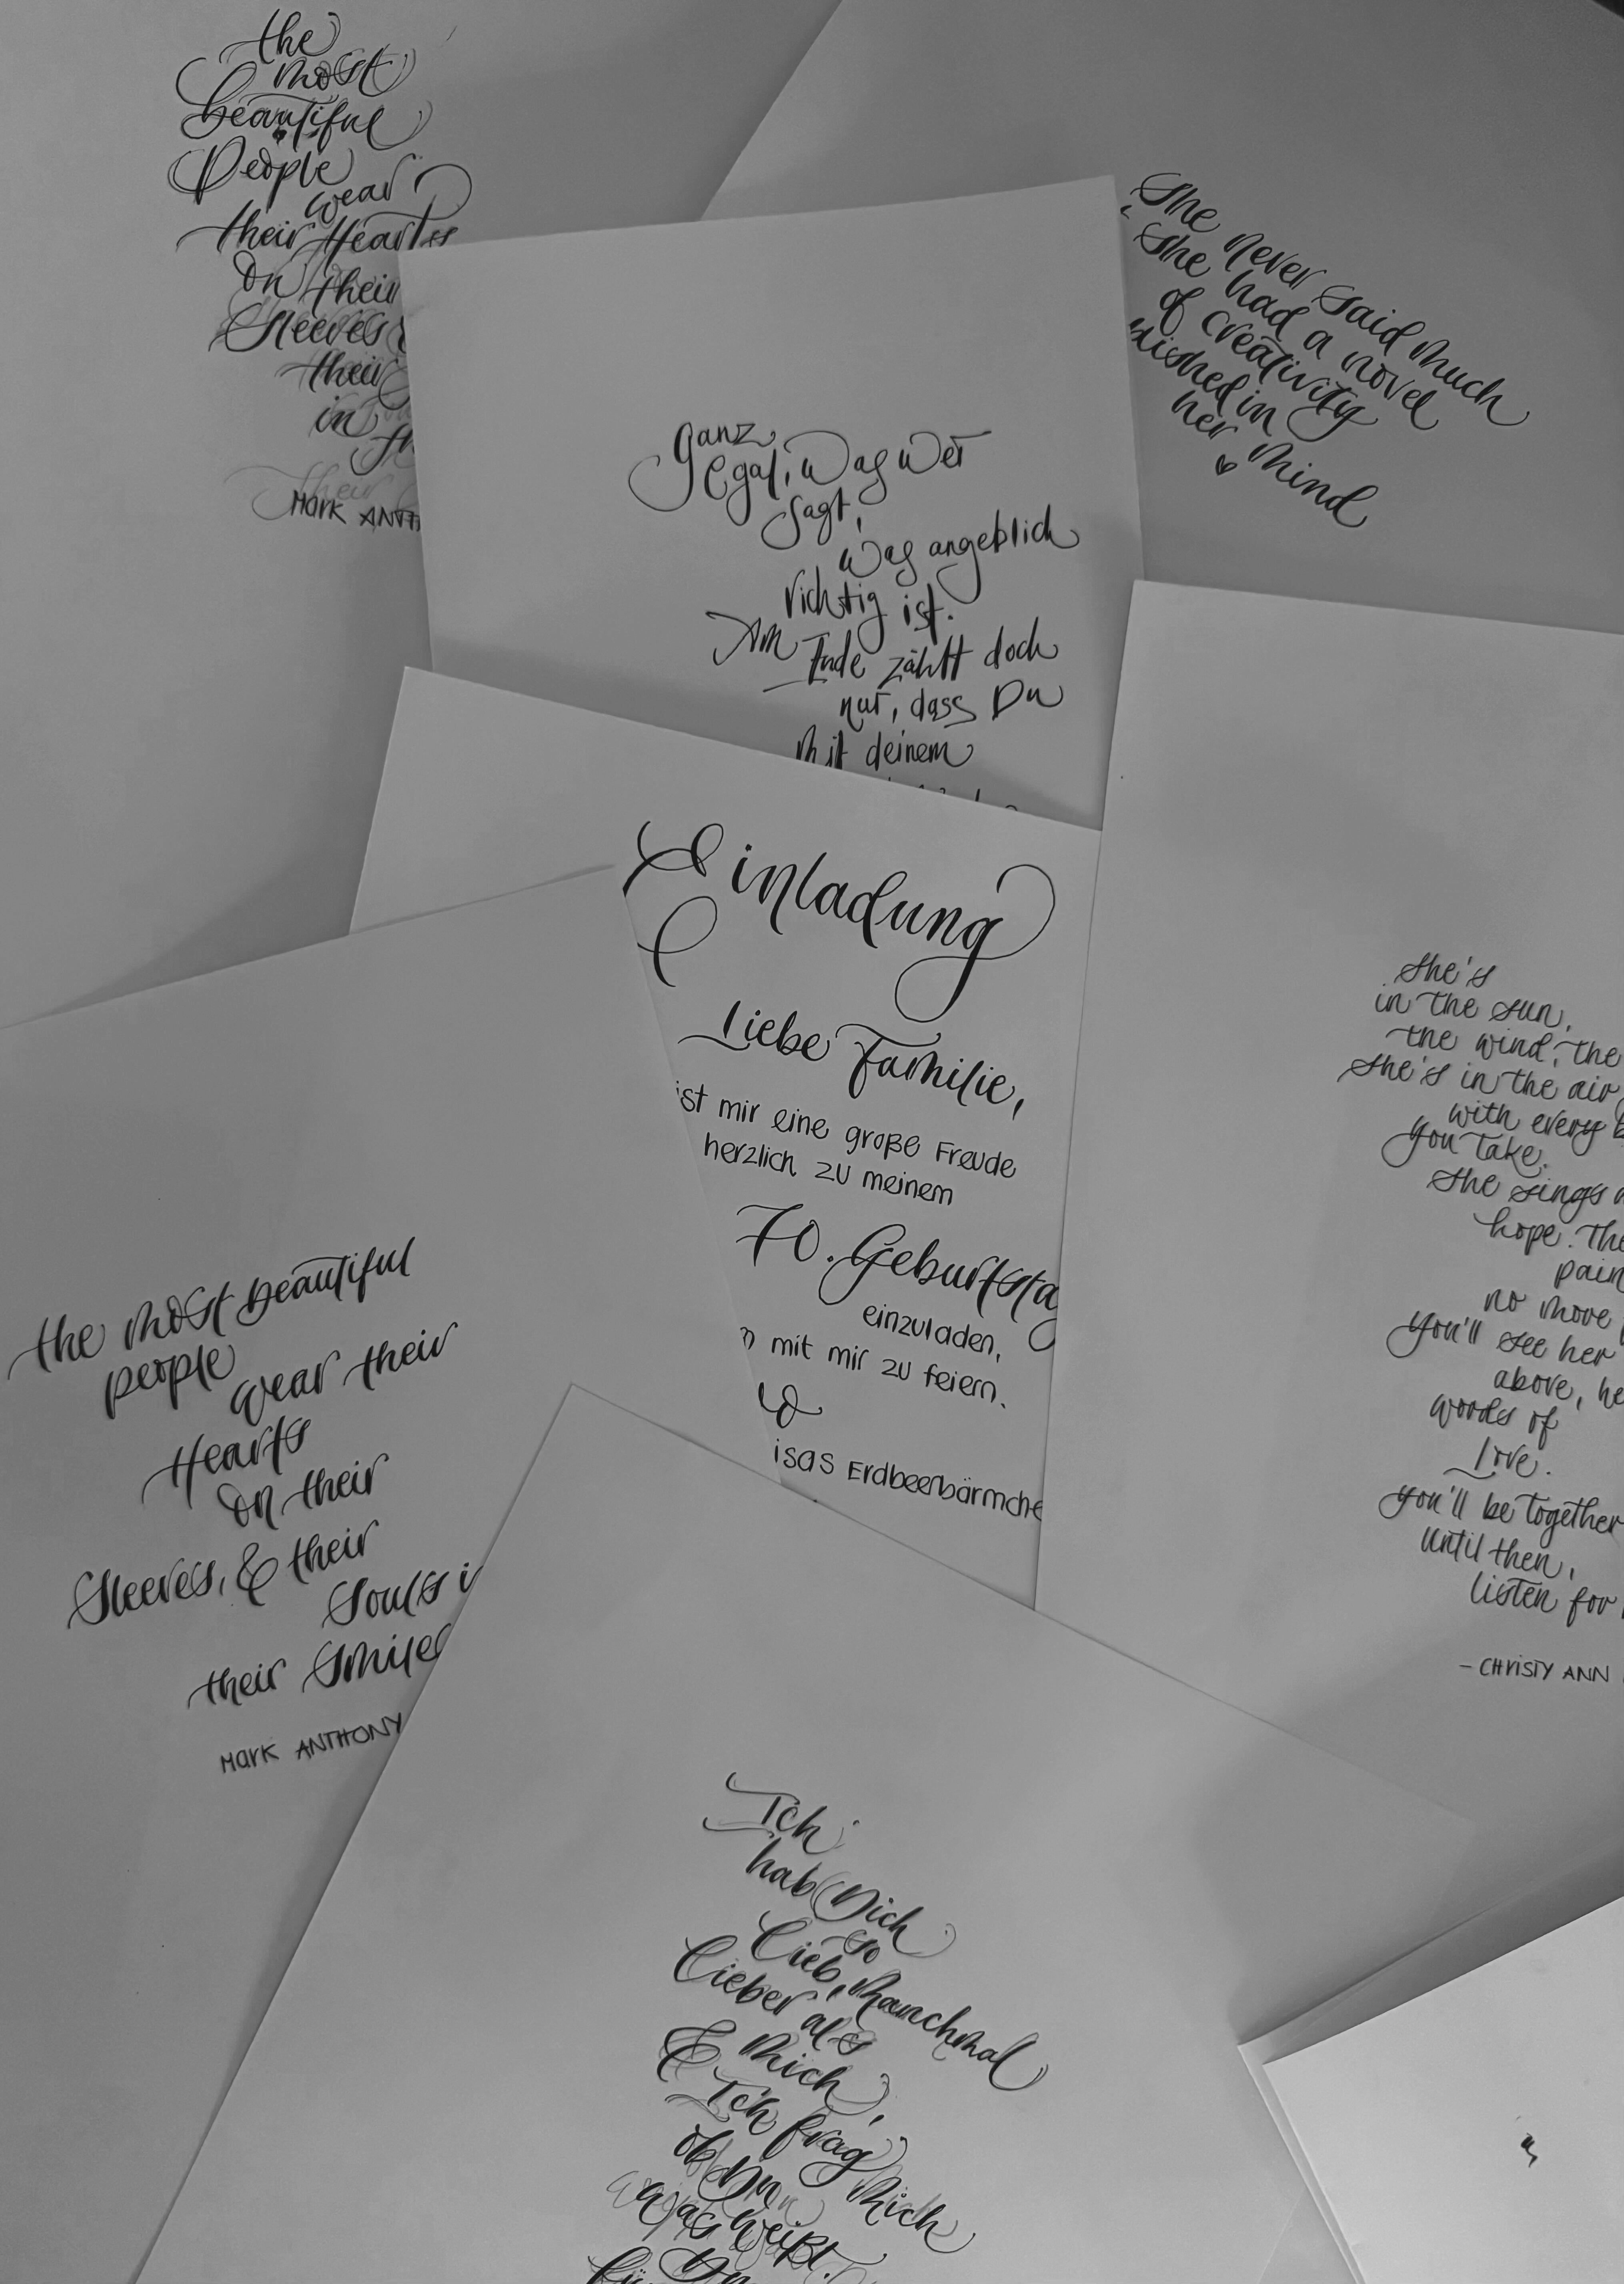 the
most
beautiful
People
wear
their Hearts
on their
Sleeves
their
in
their
Mark ANTH
She never said much
She had a novel
of creativity
blished in
her mind
ganz
egal, was wer
sagt,
was angeblich
richtig ist.
Am
Ende zählt doch
nur, dass Du
mit deinem
Einladung
Liebe Familie,
ist mir eine große Freude
herzlich zu meinem
70. Geburtsta
einzuladen,
mit mir zu feiern.
isas Erdbeerbärmche
She's
in the sun,
the wind, the
She's in the air
with every b
you take.
She sings
hope. The
pain
no move
You'll see her
above, he
woods of
Love.
You'll be together
until then,
listen for
- CHRISTY ANN
the most beautiful
people
wear their
Hearts
on their
Sleeves, & their
Souls i
their Smiles
Mark ANTHONY
Ich
hab Dich
so
lieb, manchmal
lieber als
mich
& Ich frag
mich
ob Du
was weißt.